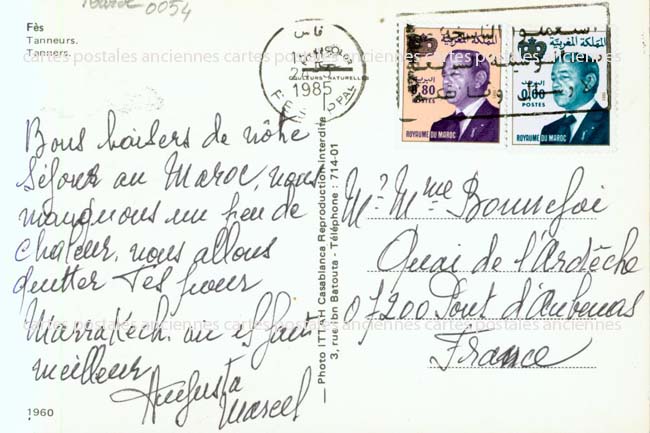 0054
Fès
Tanneurs.
Tanners.
cartes postales anciennes cartes postales anciennes cartes postales anciennes
فاس
COULEURS NATURELLES
1985
المملكة المغربية
البريد
0,80
POSTES
ROYAUME DU MAROC
المملكة المغربية
البريد
POSTES
ROYAUME DU MAROC
Bons baisers de nôtre
séjour au Maroc, nous
manquons un peu de
chaleur, nous allons
quitter Fès pour
Marrakech. ou il fait
meilleur
Augusta
Marcel
1960
Photo ITTAH Casablanca Reproduction Interdite
3, rue Ibn Batouta - Téléphone : 714-01
Mr Mme Bonnefoi
Quai de l'Ardèche
07200 Pont d'Aubenas
France
cartes postales anciennes cartes postales anciennes cartes postales anciennes